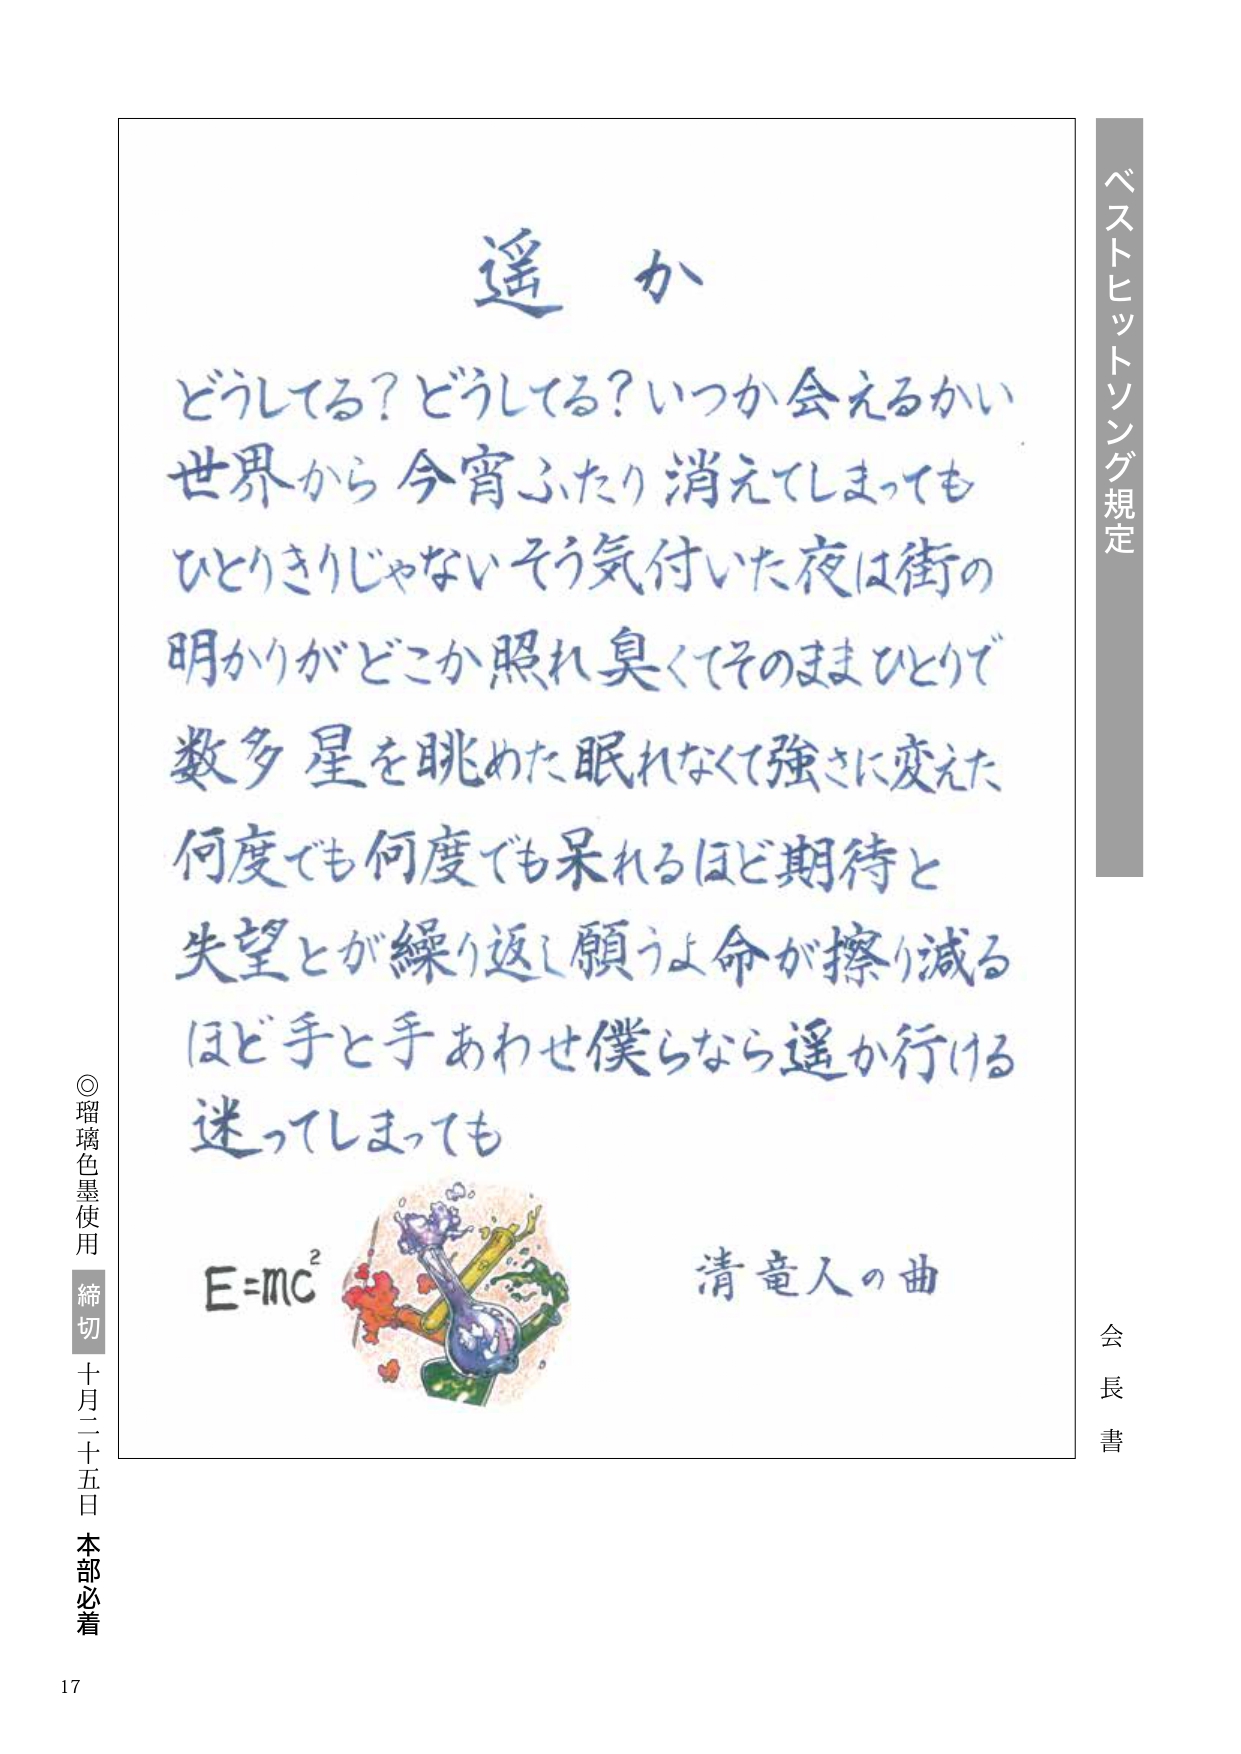 ベストヒットソング規定
会長書
遥か
どうしてる?どうしてる?いつか会えるかい
世界から今宵ふたり消えてしまっても
ひとりきりじゃないそう気付いた夜は街の
明かりがどこか照れ臭くてそのままひとりで
数多星を眺めた眠れなくて強さに変えた
何度でも何度でも呆れるほど期待と
失望とが繰り返し願うよ命が擦り減る
ほど手と手あわせ僕らなら遥か行ける
迷ってしまっても
E=mc²
清竜人の曲
◎瑠璃色墨使用 締切 十月二十五日 本部必着
17